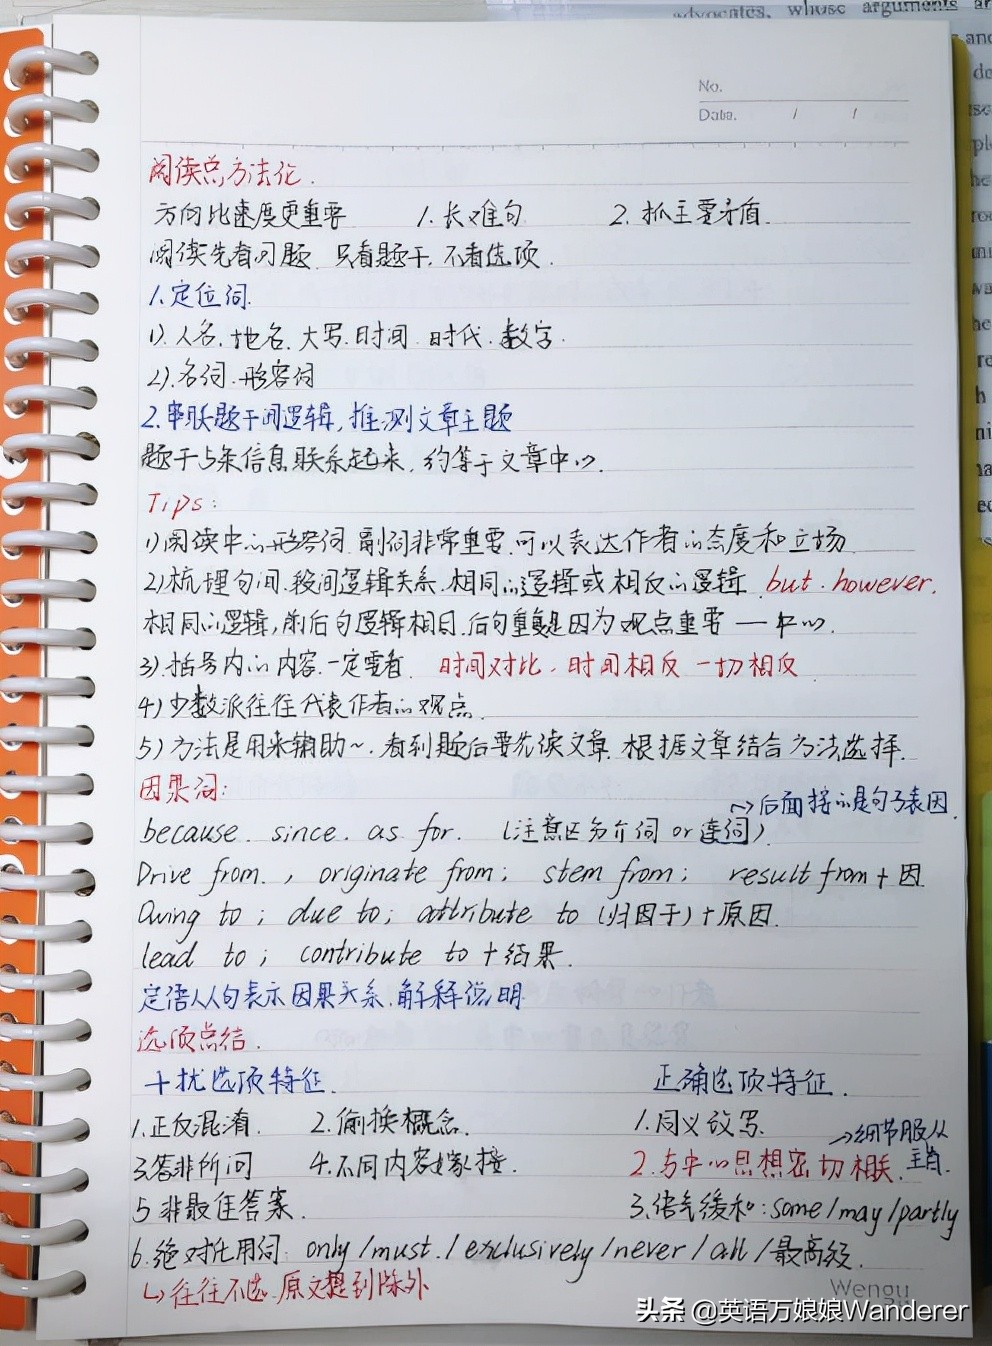 advocates, whose arguments ar
No.
Date. / /
阅读总方法论.
方向比速度更重要 1.长难句 2.抓主要矛盾.
阅读先看习题 只看题干,不看选项.
1.定位词.
1).人名.地名.大写.时间.时代.数字.
2).名词.形容词
2.串联题干间逻辑,推测文章主题
题干5条信息联系起来,约等于文章中心.
Tips:
1)阅读中的形容词 副词非常重要,可以表达作者的态度和立场
2)梳理句间.段间逻辑关系.相同的逻辑或相反的逻辑 but.however.
相同的逻辑,前后句逻辑相同.后句重复是因为观点重要 — 中心.
3)括号内的内容.一定要看. 时间对比.时间相反 一切相反
4)少数派往往代表作者的观点.
5)方法是用来辅助~.看到题后要先读文章.根据文章结合方法选择.
因果词:
→后面接的是句子表因.
because. since. as for. (注意区分介词or连词)
Drive from., originate from; stem from; result from+因.
Owing to; due to; attribute to (归因于)+原因.
lead to; contribute to +结果.
定语从句表示因果关系.解释说明
选项总结.
干扰选项特征. 正确选项特征.
1.正反混淆. 2.偷换概念. 1.同义改写.
→细节服从主旨.
3.答非所问 4.不同内容嫁接. 2.与中心思想密切相联.
5.非最佳答案. 3.语气缓和:some/may/partly
6.绝对化用词: only/must./exclusively/never/all/最高级.
↳往往不选.原文提到除外
Wengu
头条 @英语万娘娘Wanderer